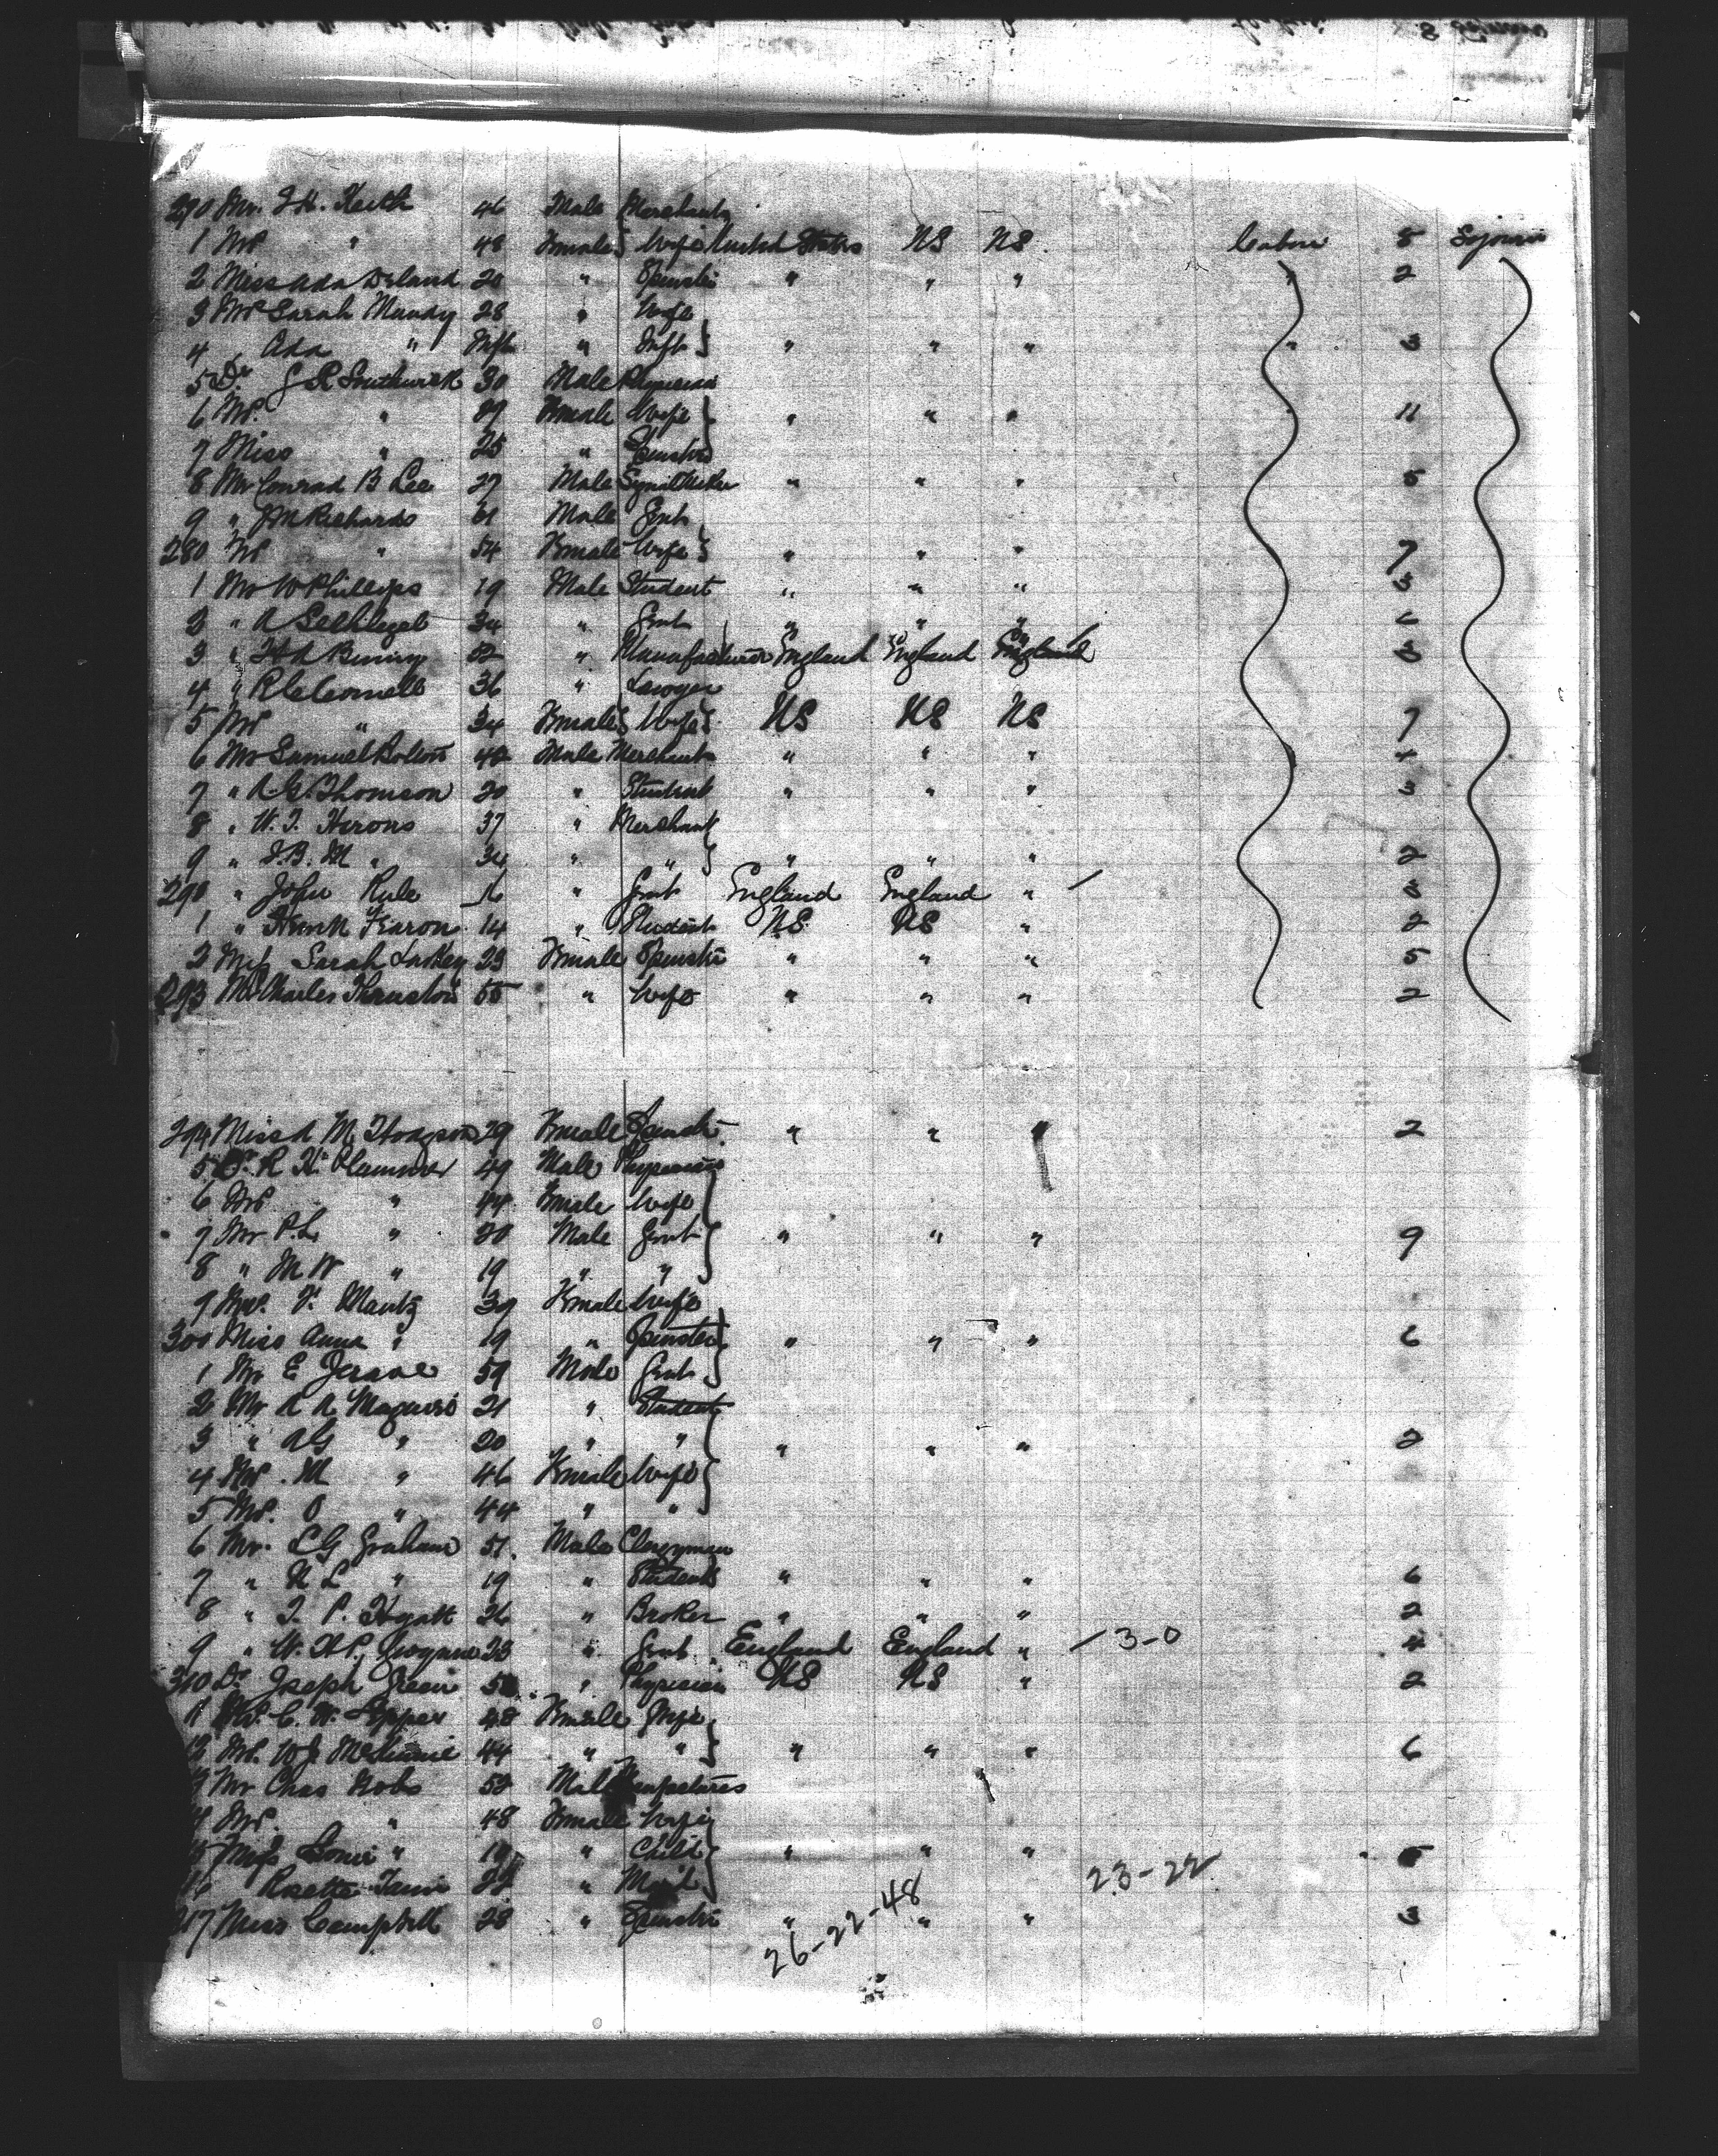 270 Mr. J H. Keith 46 Male Merchant
1 Mrs " 48 Female Wife United States US US Cabin 8 Sojourn
2 Miss Ada Deland 20 " Spinster " " " 2
3 Mrs Sarah Mundy 28 " Wife
4 Ada " Inft " Inft " " " " 3
5 Dr. G R Southwick 30 Male Physician
6 Mrs. " 29 Female Wife " " " 11
7 Miss " 25 " Spinster
8 Mr Conrad B Lee 27 Male " " " 5
9 " J M Richards 61 Male Gent
280 Mrs " 54 Female Wife " " " 7
1 Mr W Phillips 19 Male Student " " " 3
2 " A 34 " Gent " " "
3 " Binny 52 " Manufacturer England England England 3
4 " R C Cornell 36 " Lawyer
5 Mrs " 34 Female Wife US US US 7
6 Mr Samuel Bolton 42 Male Merchant " " " 4
7 " A G Thomson 20 " Student " " " 3
8 " W. J. Herons 37 " Merchant
9 " J. B. M " 34 " " " " " 2
290 " John Rule 16 " Gent England England " 3
1 " Frank Fearon 14 " Student US US " 2
2 Miss Sarah Laskey 23 Female Spinster " " " 5
293 Mrs Charles Thruston 55 " Wife " " " 2
294 Miss A M Hodgson 29 Female Spinster " " " 2
5 Dr. R H Plummer 49 Male Physician
6 Mrs " 44 Female Wife
7 Mr P. L " 20 Male Gent " " " 9
8 " M W " 19 " "
9 Mrs. F. Mantz 39 Female Wife
300 Miss Anna " 19 " Spinster " " " 6
1 Mr E 59 Male Gent
2 Mr A A Maginnis 21 " Student
3 " A G " 20 " " " " " 2
4 Mrs. M " 46 Female Wife
5 Mrs. O " 44 " "
6 Mr. C G Graham 51. Male Clergyman
7 " N L " 19 " Student " " " 6
8 " J. P. Hyatt 26 " Broker " " " 2
9 " W. H P. Grogan 23 " Gent England England " 3-0 4
310 Dr Joseph 50 " Physician US US " 2
1 Mrs. C. W. 48 Female Wife
12 Mrs. W J 44 " " " " " 6
3 Mr Chas 52 Male Manufacturer
4 Mrs. " 48 Female Wife
5 Miss " 10 " Child " " " 5
6 Rosetta " Maid 23-22
317 Miss Campbell 28 " Spinster " " " 3
26-22-48